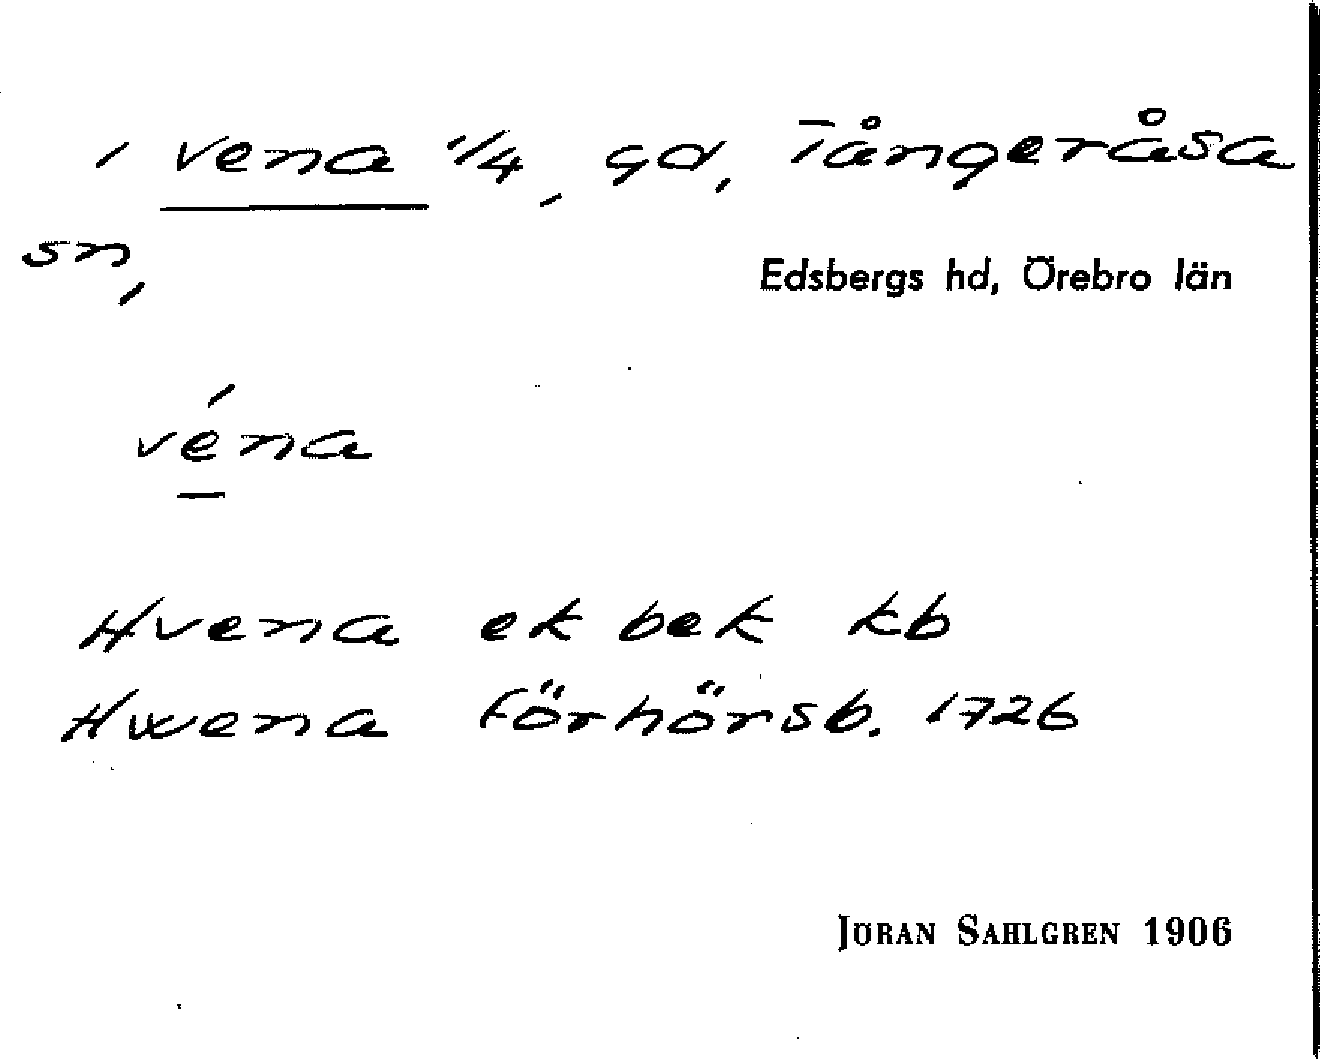 1 Vena 1/4, gd, Tångeråsa
sn,
Edsbergs hd, Örebro län
véna
Hvena ek bek kb
Hwena förhörsb. 1726
JÖRAN SAHLGREN 1906